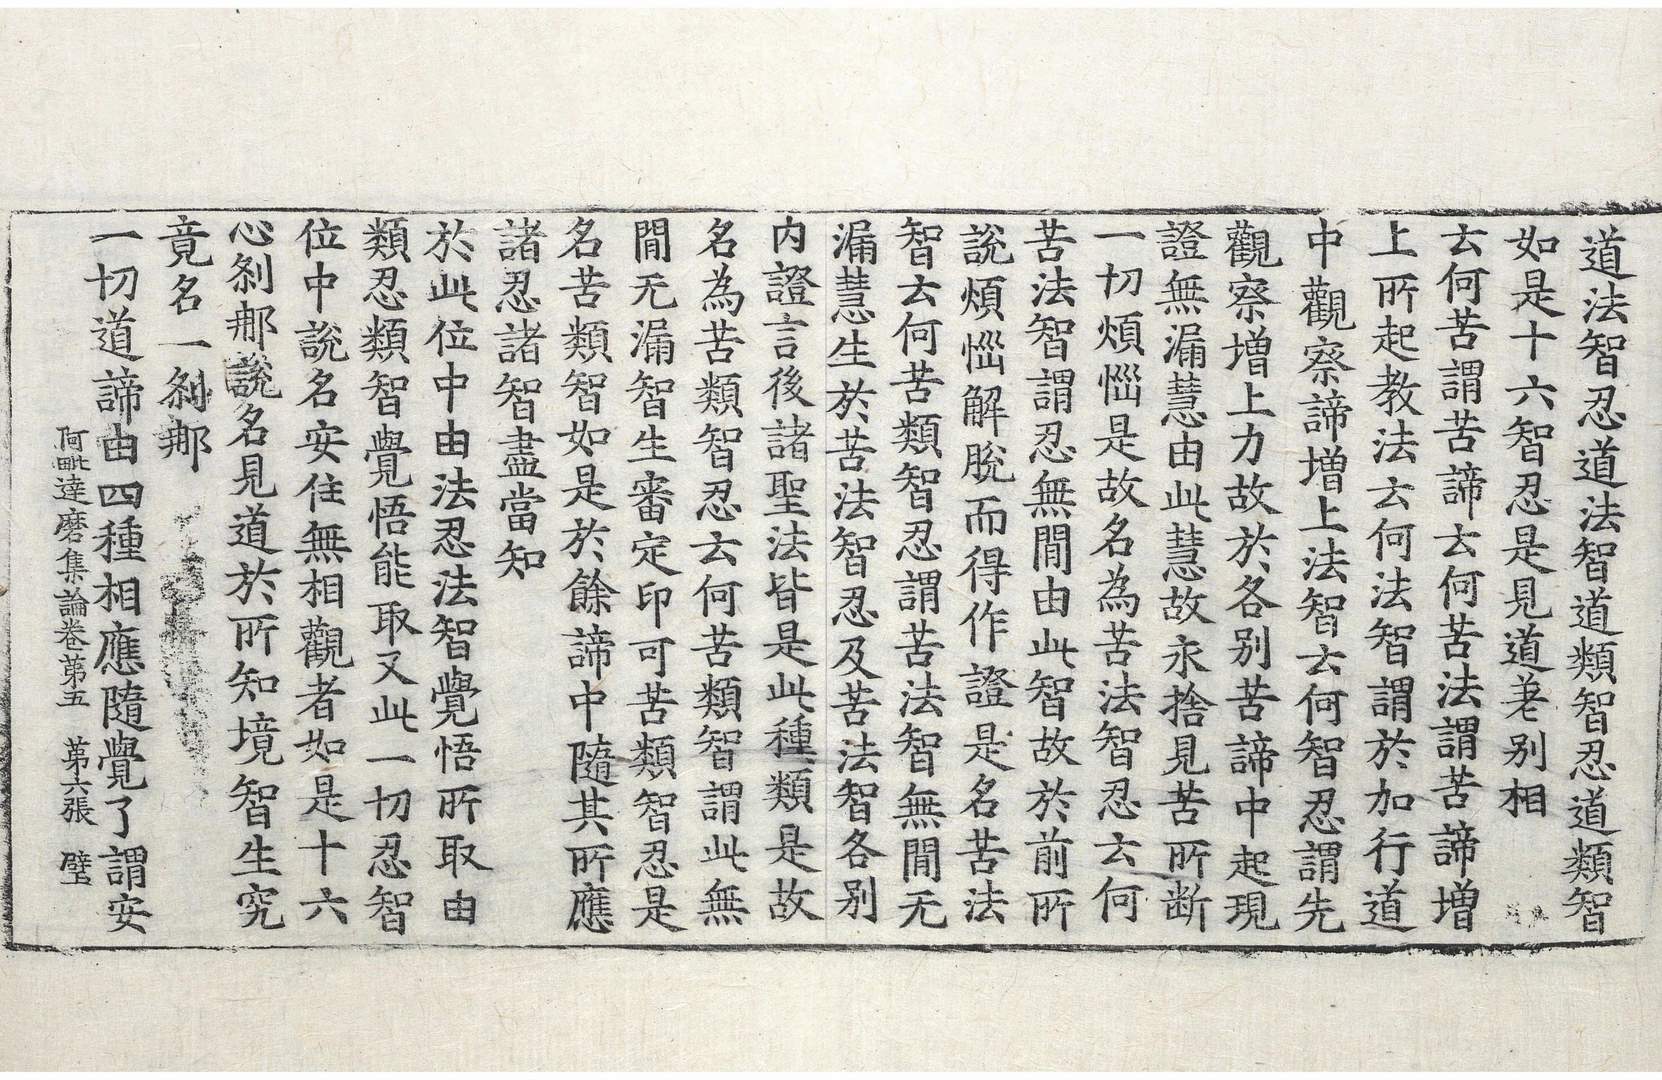 道法智忍道法智道類智忍道類智
如是十六智忍是見道差别相
云何苦謂苦諦云何苦法謂苦諦增
上所起教法云何法智謂於加行道
中觀察諦增上法智云何智忍謂先
觀察增上力故於各别苦諦中起現
證無漏慧由此慧故永捨見苦所断
一切煩惱是故名為苦法智忍云何
苦法智謂忍無間由此智故於前所
說煩惱解脫而得作證是名苦法
智云何苦類智忍謂苦法智無間无
漏慧生於苦法智忍及苦法智各别
内證言後諸聖法皆是此種類是故
名為苦類智忍云何苦類智謂此無
間无漏智生審定印可苦類智忍是
名苦類智如是於餘諦中隨其所應
諸忍諸智盡當知
於此位中由法忍法智覺悟所取由
類忍類智覺悟能取又此一切忍智
位中說名安住無相觀者如是十六
心剎那說名見道於所知境智生究
竟名一剎那
一切道諦由四種相應隨覺了謂安
阿毗達磨集論卷第五 第六張 璧